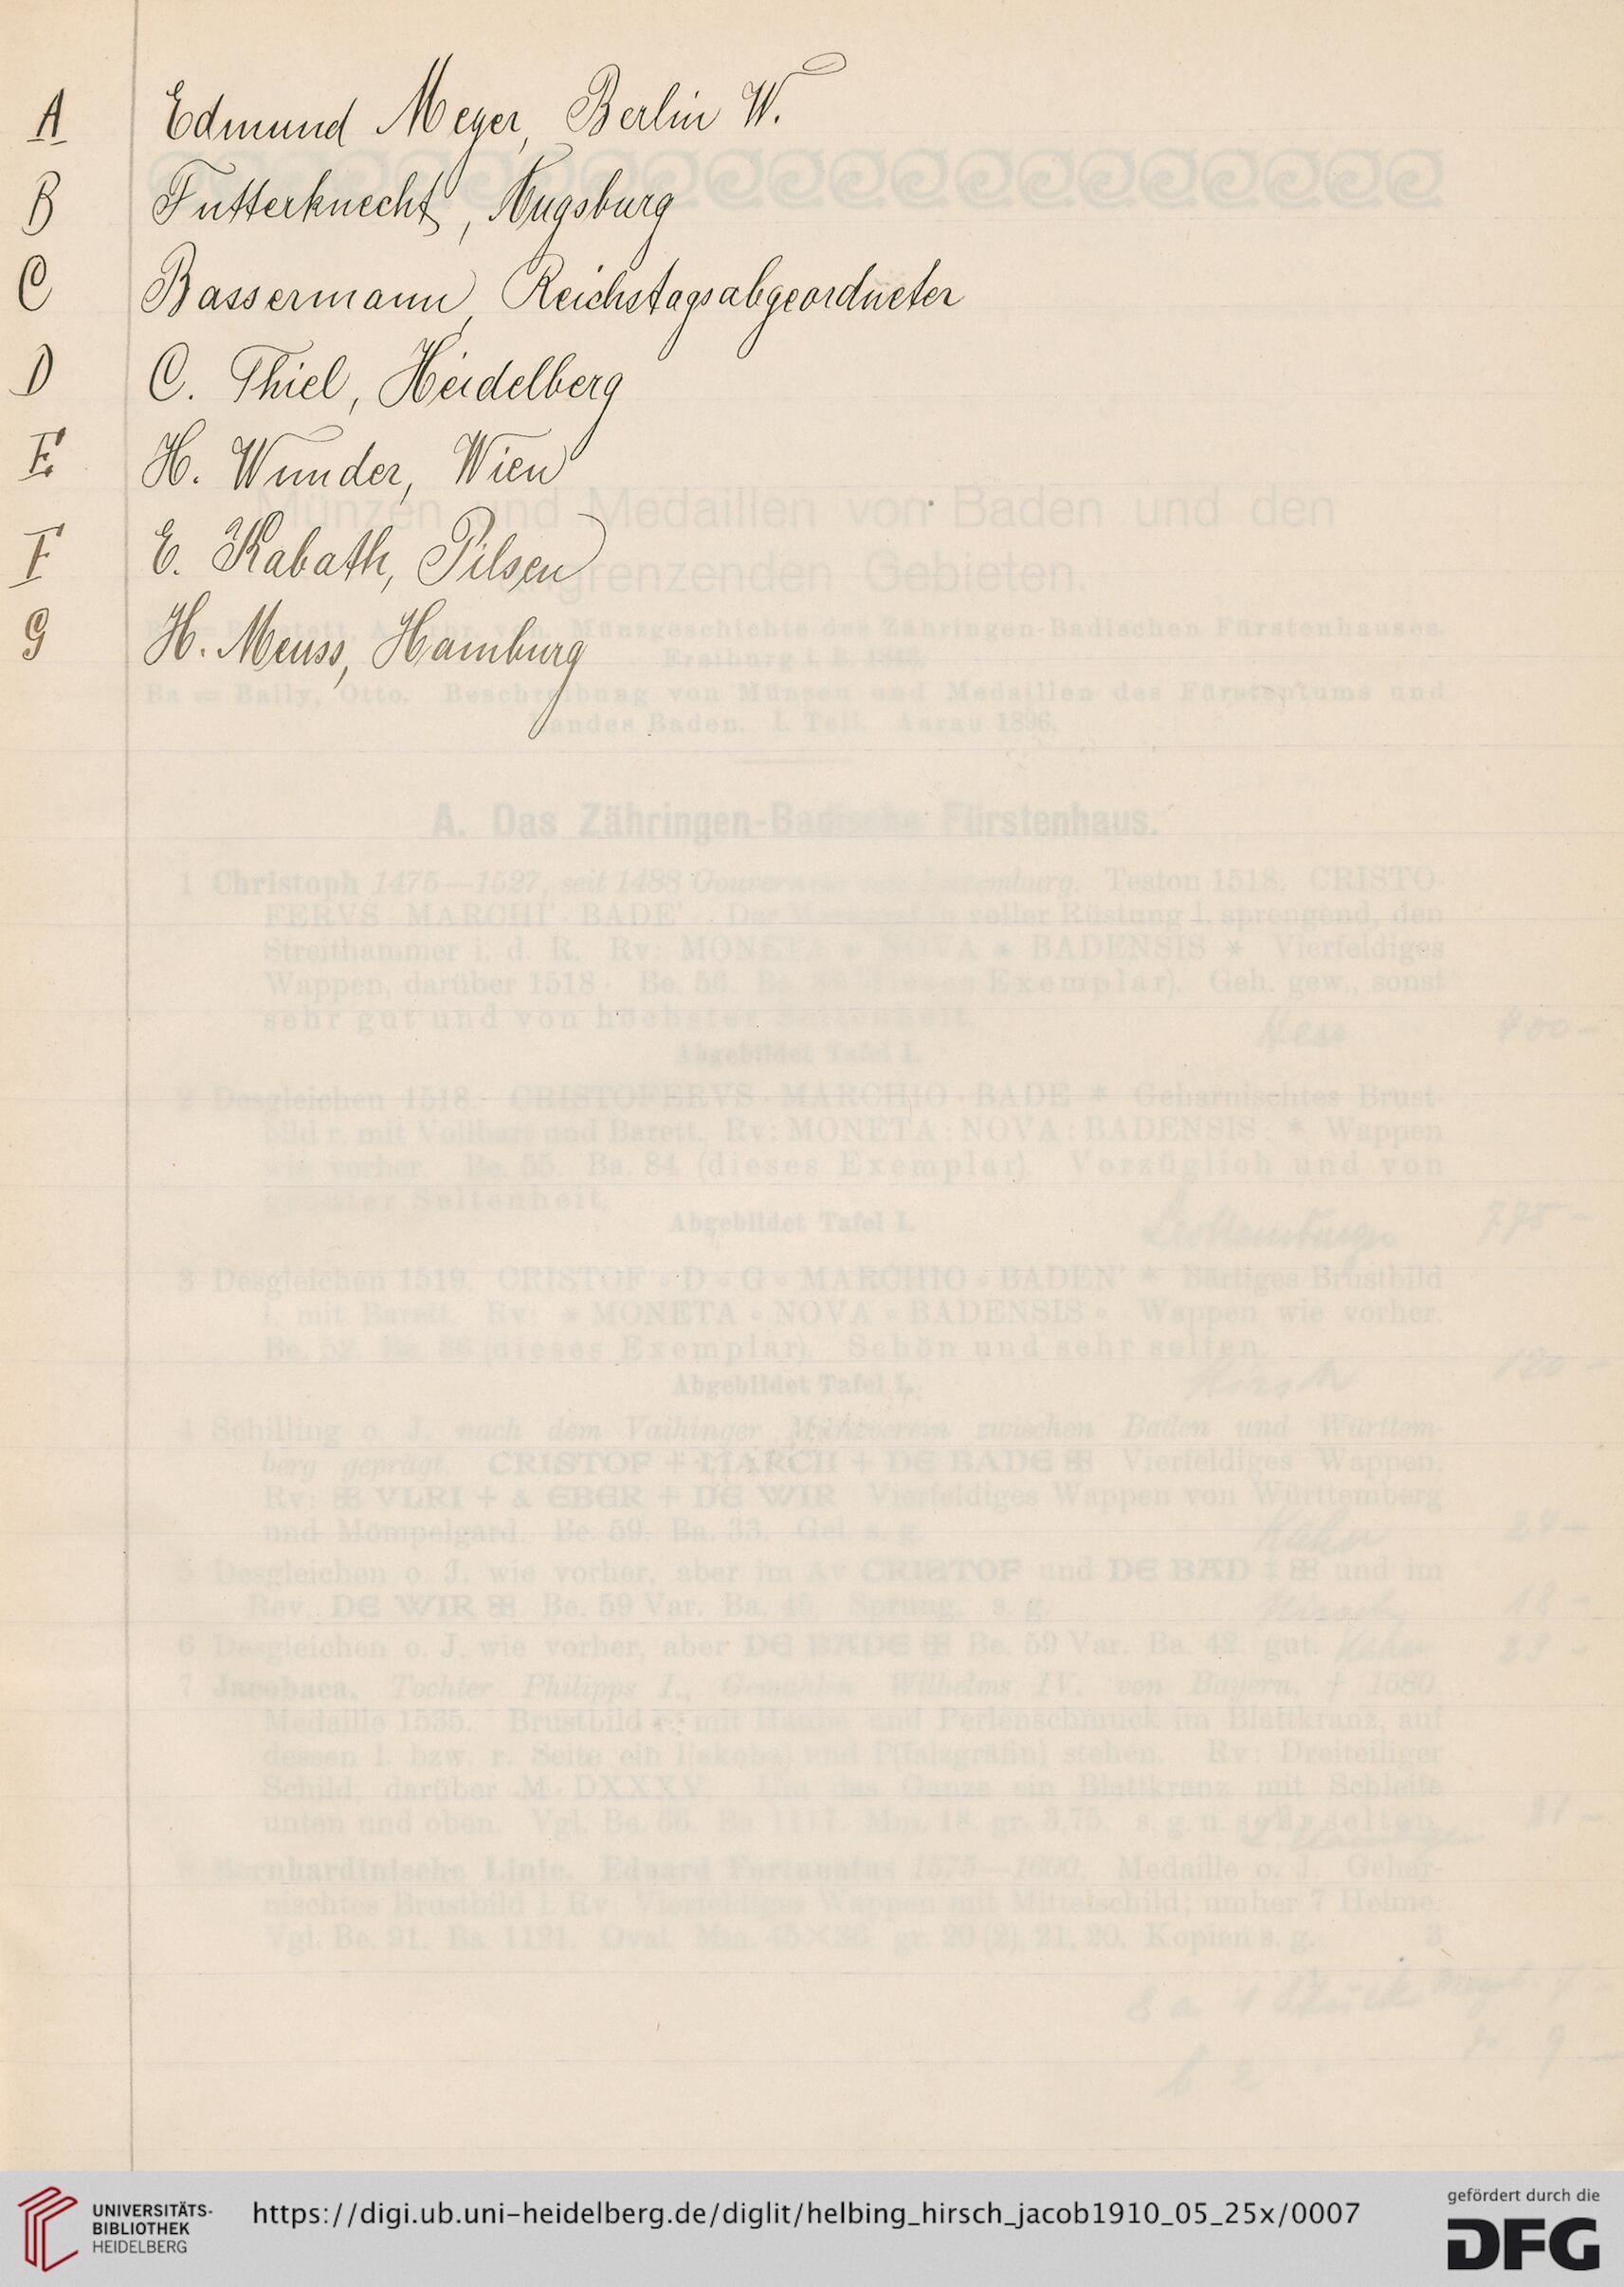 A Edmund Meyer, Berlin W.
B Futterknecht, Augsburg
C Bassermann, Reichstagsabgeordneter
D C. Thiel, Heidelberg
E H. Wunder, Wien
F E. Kabath, Pilsen
G H. Meuss, Hamburg
Münzen und Medaillen von Baden und den
angrenzenden Gebieten.
Münzgeschichte des Zähringen-Badischen Fürstenhauses.
Freiburg i. B.
Ba = Bally, Otto. Beschreibung von Münzen und Medaillen des Fürstentums und
Landes Baden. I. Teil. Aarau 1896.
A. Das Zähringen-Badische Fürstenhaus.
1 Christoph 1475—1527, seit 1488 Gouverneur von Luxemburg. Teston 1518. CRISTO-
FERVS MARCHI' BADE' Der Markgraf in voller Rüstung l. sprengend, den
Streithammer i. d. R. Rv: MONETA * NOVA * BADENSIS * Vierfeldiges
Wappen, darüber 1518 · Be. 56. (dieses Exemplar). Geh. gew., sonst
sehr gut und von höchster Seltenheit.
Abgebildet Tafel I.
2 Desgleichen 1518. CRISTOFERVS · MARCHIO · BADE * Geharnischtes Brust-
bild r. mit Vollbart und Barett. Rv: MONETA : NOVA : BADENSIS : * Wappen
wie vorher. Be. 55. Ba. 84 (dieses Exemplar). Vorzüglich und von
grösster Seltenheit.
Abgebildet Tafel I.
775 -
3 Desgleichen 1519. CRISTOF ∘ D ∘ G ∘ MARCHIO ∘ BADEN' * Bärtiges Brustbild
l. mit Barett. Rv: * MONETA ∘ NOVA ∘ BADENSIS ∘ Wappen wie vorher.
Be. 52. Ba. 86 (dieses Exemplar). Schön und sehr selten.
Abgebildet Tafel I.
Hirsch 120 -
4 Schilling o. J. nach dem Vaihinger Münzverein zwischen Baden und Württem-
berg geprägt. CRISTOF + MARCH + DE BADE ⌘ Vierfeldiges Wappen.
Rv: ⌘ VLRI + & EBER + DE WIR Vierfeldiges Wappen von Württemberg
und Mömpelgard. Be. 59. Ba. 33. Gel. s. g.
Kahn 24 -
5 Desgleichen o. J. wie vorher, aber im Av CRISTOF und DE BAD ⌘ und im
Rev. DE WIR ⌘ Be. 59 Var. Ba. 45. Sprung. s. g.
Hirsch 18 -
6 Desgleichen o. J. wie vorher, aber DE BADE ⌘ Be. 59 Var. Ba. 42. gut. Kahn 23 -
7 Jacobaea, Tochter Philipps I., Gemahlin Wilhelms IV. von Bayern, † 1580.
Medaille 1535. Brustbild r. mit Haube und Perlenschmuck im Blattkranz, auf
dessen l. bzw. r. Seite ein I(akoba) und P(falzgräfin) stehen. Rv: Dreiteiliger
Schild, darüber M · DXXXV. Um das Ganze ein Blattkranz mit Schleife
unten und oben. Vgl. Be. 66. Ba. 1117. Mm. 18. gr. 3,75. s. g. u. sehr selten.
31 -
8 Bernhardinische Linie. Eduard Fortunatus 1575—1600. Medaille o. J. Gehar-
nischtes Brustbild l. Rv: Vierfeldiges Wappen mit Mittelschild; umher 7 Helme.
Vgl. Be. 91. Ba. 1121. Oval. Mm. 45×36. gr. 20 (2), 21, 20. Kopien s. g. 3
8 a 1 Stück
b 2 9 -
UNIVERSITÄTS-
BIBLIOTHEK
HEIDELBERG
https://digi.ub.uni-heidelberg.de/diglit/helbing_hirsch_jacob1910_05_25x/0007
gefördert durch die
DFG